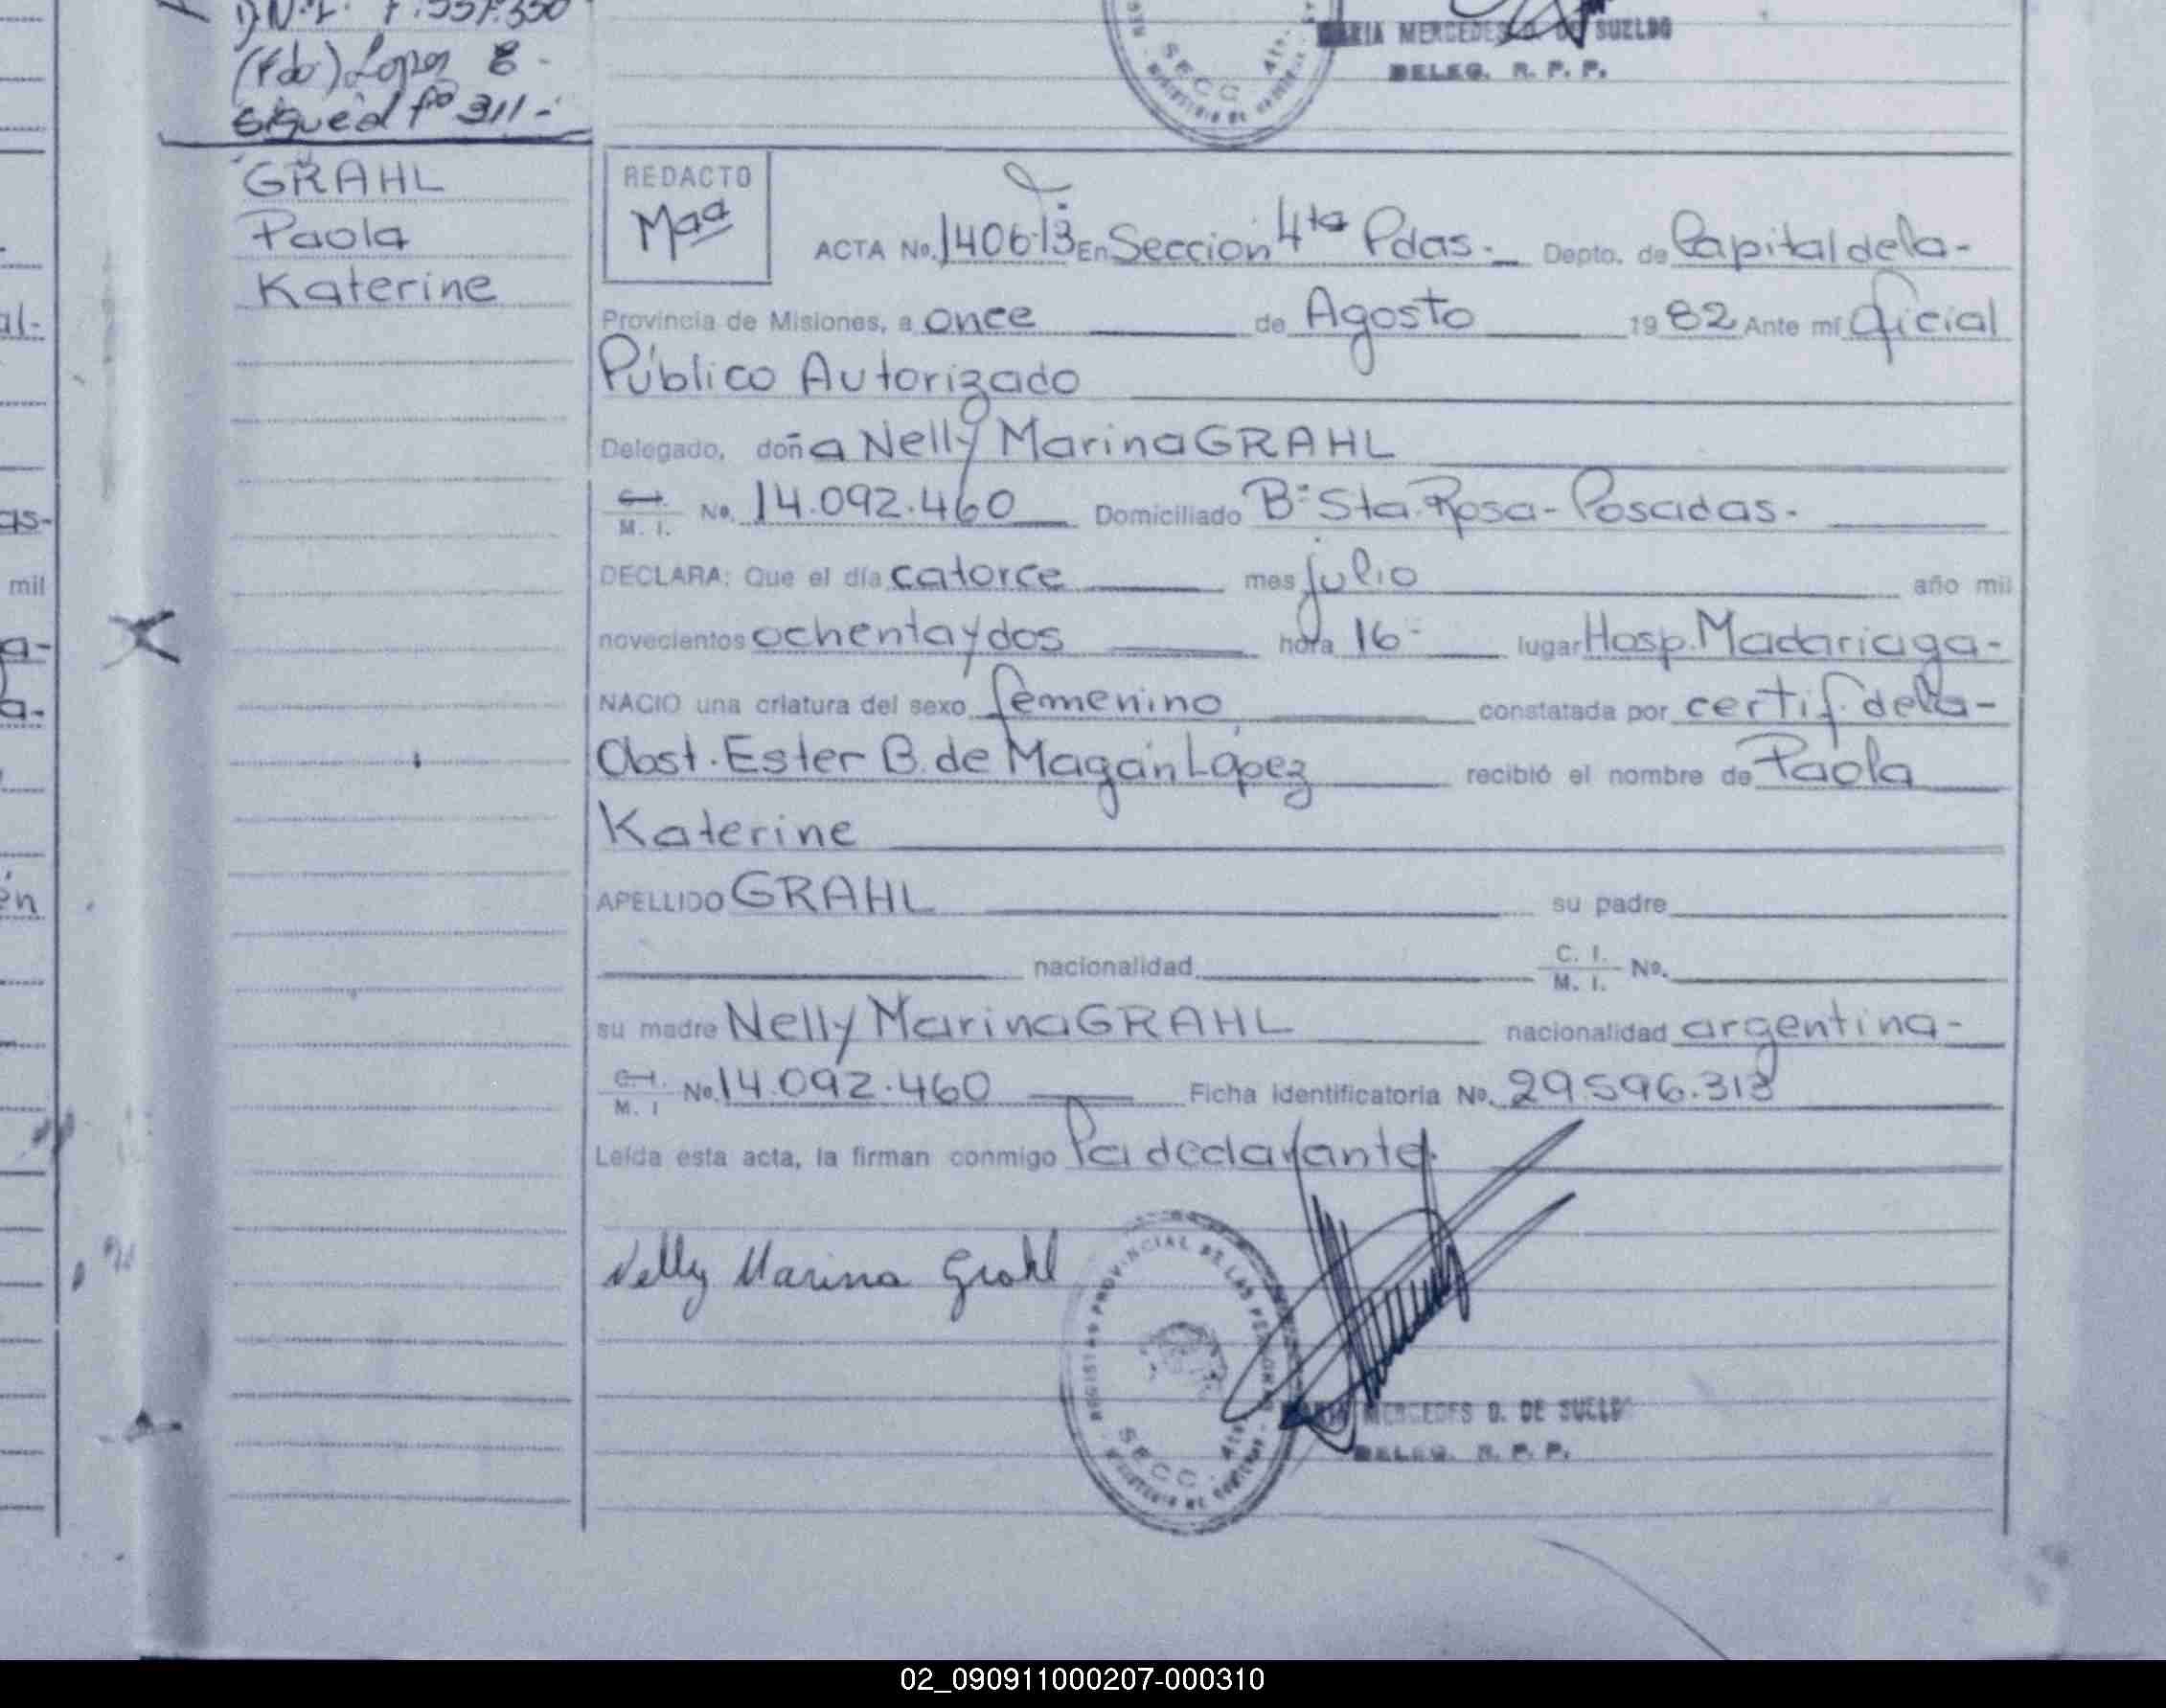 D.N.I. 7.557.350
(Fdo) Lopez E -
sigue al fº 311 -
MARIA MERCEDES D. DE SUELDO
DELEG. R. P. P.
SECC. 4ta.
GRAHL
Paola
Katerine
REDACTO
Maa
ACTA No. 1406-T3 En Seccion 4ta Pdas. Depto. de Capital de la-
Provincia de Misiones, a once de Agosto 1982 Ante mí Oficial
Público Autorizado
Delegado, doña Nelly Marina GRAHL
C.I. M. I. No. 14.092.460 Domiciliado Bº Sta. Rosa - Posadas.
DECLARA: Que el día catorce mes julio año mil
novecientos ochenta y dos hora 16- lugar Hosp. Madariaga-
NACIO una criatura del sexo femenino constatada por certif. de la-
Obst. Ester B. de Magán López recibió el nombre de Paola
Katerine
APELLIDO GRAHL su padre
nacionalidad C. I. M. I. No.
su madre Nelly Marina GRAHL nacionalidad argentina-
C.I. M. I No. 14.092.460 Ficha identificatoria No. 29.596.313
Leída esta acta, la firman conmigo la declarante
Nelly Marina Grahl
REGISTRO PROVINCIAL DE LAS PERSONAS
SECC. 4ta
MINISTERIO DE GOBIERNO
MARIA MERCEDES D. DE SUELDO
DELEG. R. P. P.
al-
as-
mil
a-
a-
én
02_090911000207-000310